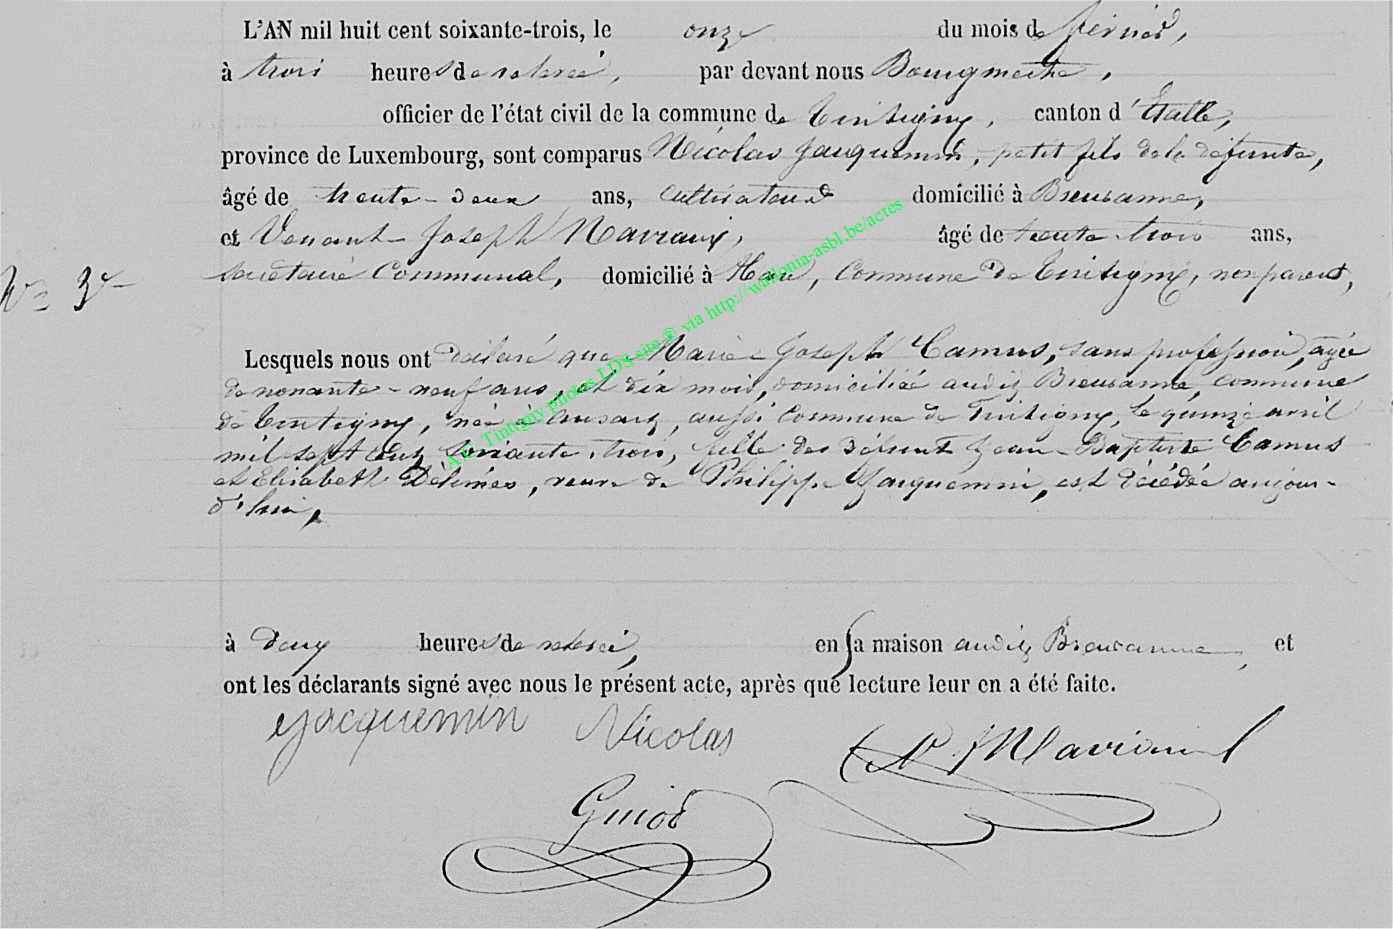 L'AN mil huit cent soixante-trois, le onze du mois de février,
à trois heures de relevée, par devant nous Bourgmestre,
officier de l'état civil de la commune de Tintigny, canton d'Etalle,
province de Luxembourg, sont comparus Nicolas Jacquemin, petit fils de la défunte,
âgé de trente-deux ans, cultivateur domicilié à Breuvanne,
et Venant-Joseph Mavraux, âgé de trente trois ans,
secrétaire Communal, domicilié à Han, Commune de Tintigny, non parent,
N= 3
Lesquels nous ont déclaré que Marie-Joseph Camus, sans profession, agée
de nonante-neuf ans, et dix mois, domiciliée audit Breuvanne, commune
de Tintigny, née à Ansart, aussi Commune de Tintigny, le quinze avril
mil sept cent soixante trois, fille des défunts Jean-Baptiste Camus
et Elisabeth, veuve de Philippe Jacquemin, est décédée aujour-
d'hui,
à deux heures de relevée, en sa maison audit Breuvanne, et
ont les déclarants signé avec nous le présent acte, après que lecture leur en a été faite.
Jacquemin Nicolas
Guiot
A.E. Tintigny photos LDS site® via http://wallonia-asbl.be/actes